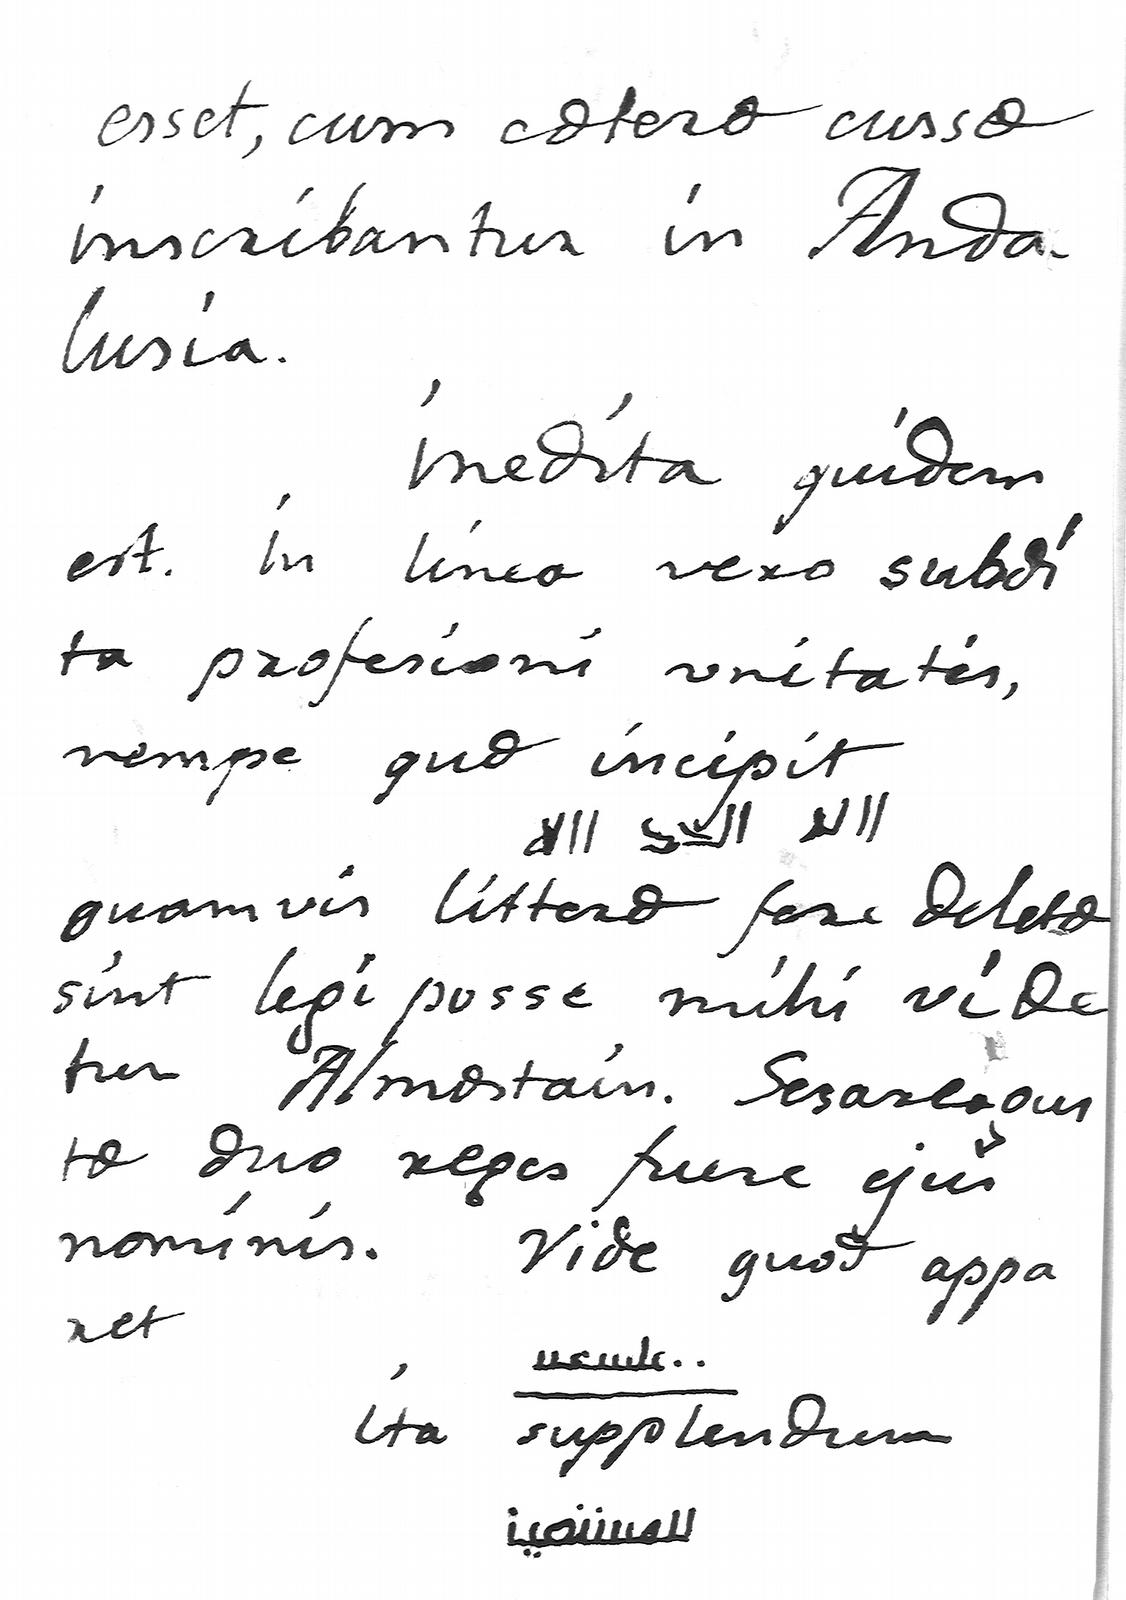 esset, cum cæteræ cussæ
inscribantur in Anda-
lusia.
inedita quidem
est. in linea vero subdi
ta profesioni vnitatis,
nempe quæ incipit
quamvis litteræ fere deletæ
sint legi posse mihi vide
tur Almostain.
tæ duo reges fuere ejus
nominis. Vide quod appa
ret
ita supplendum
المستعين